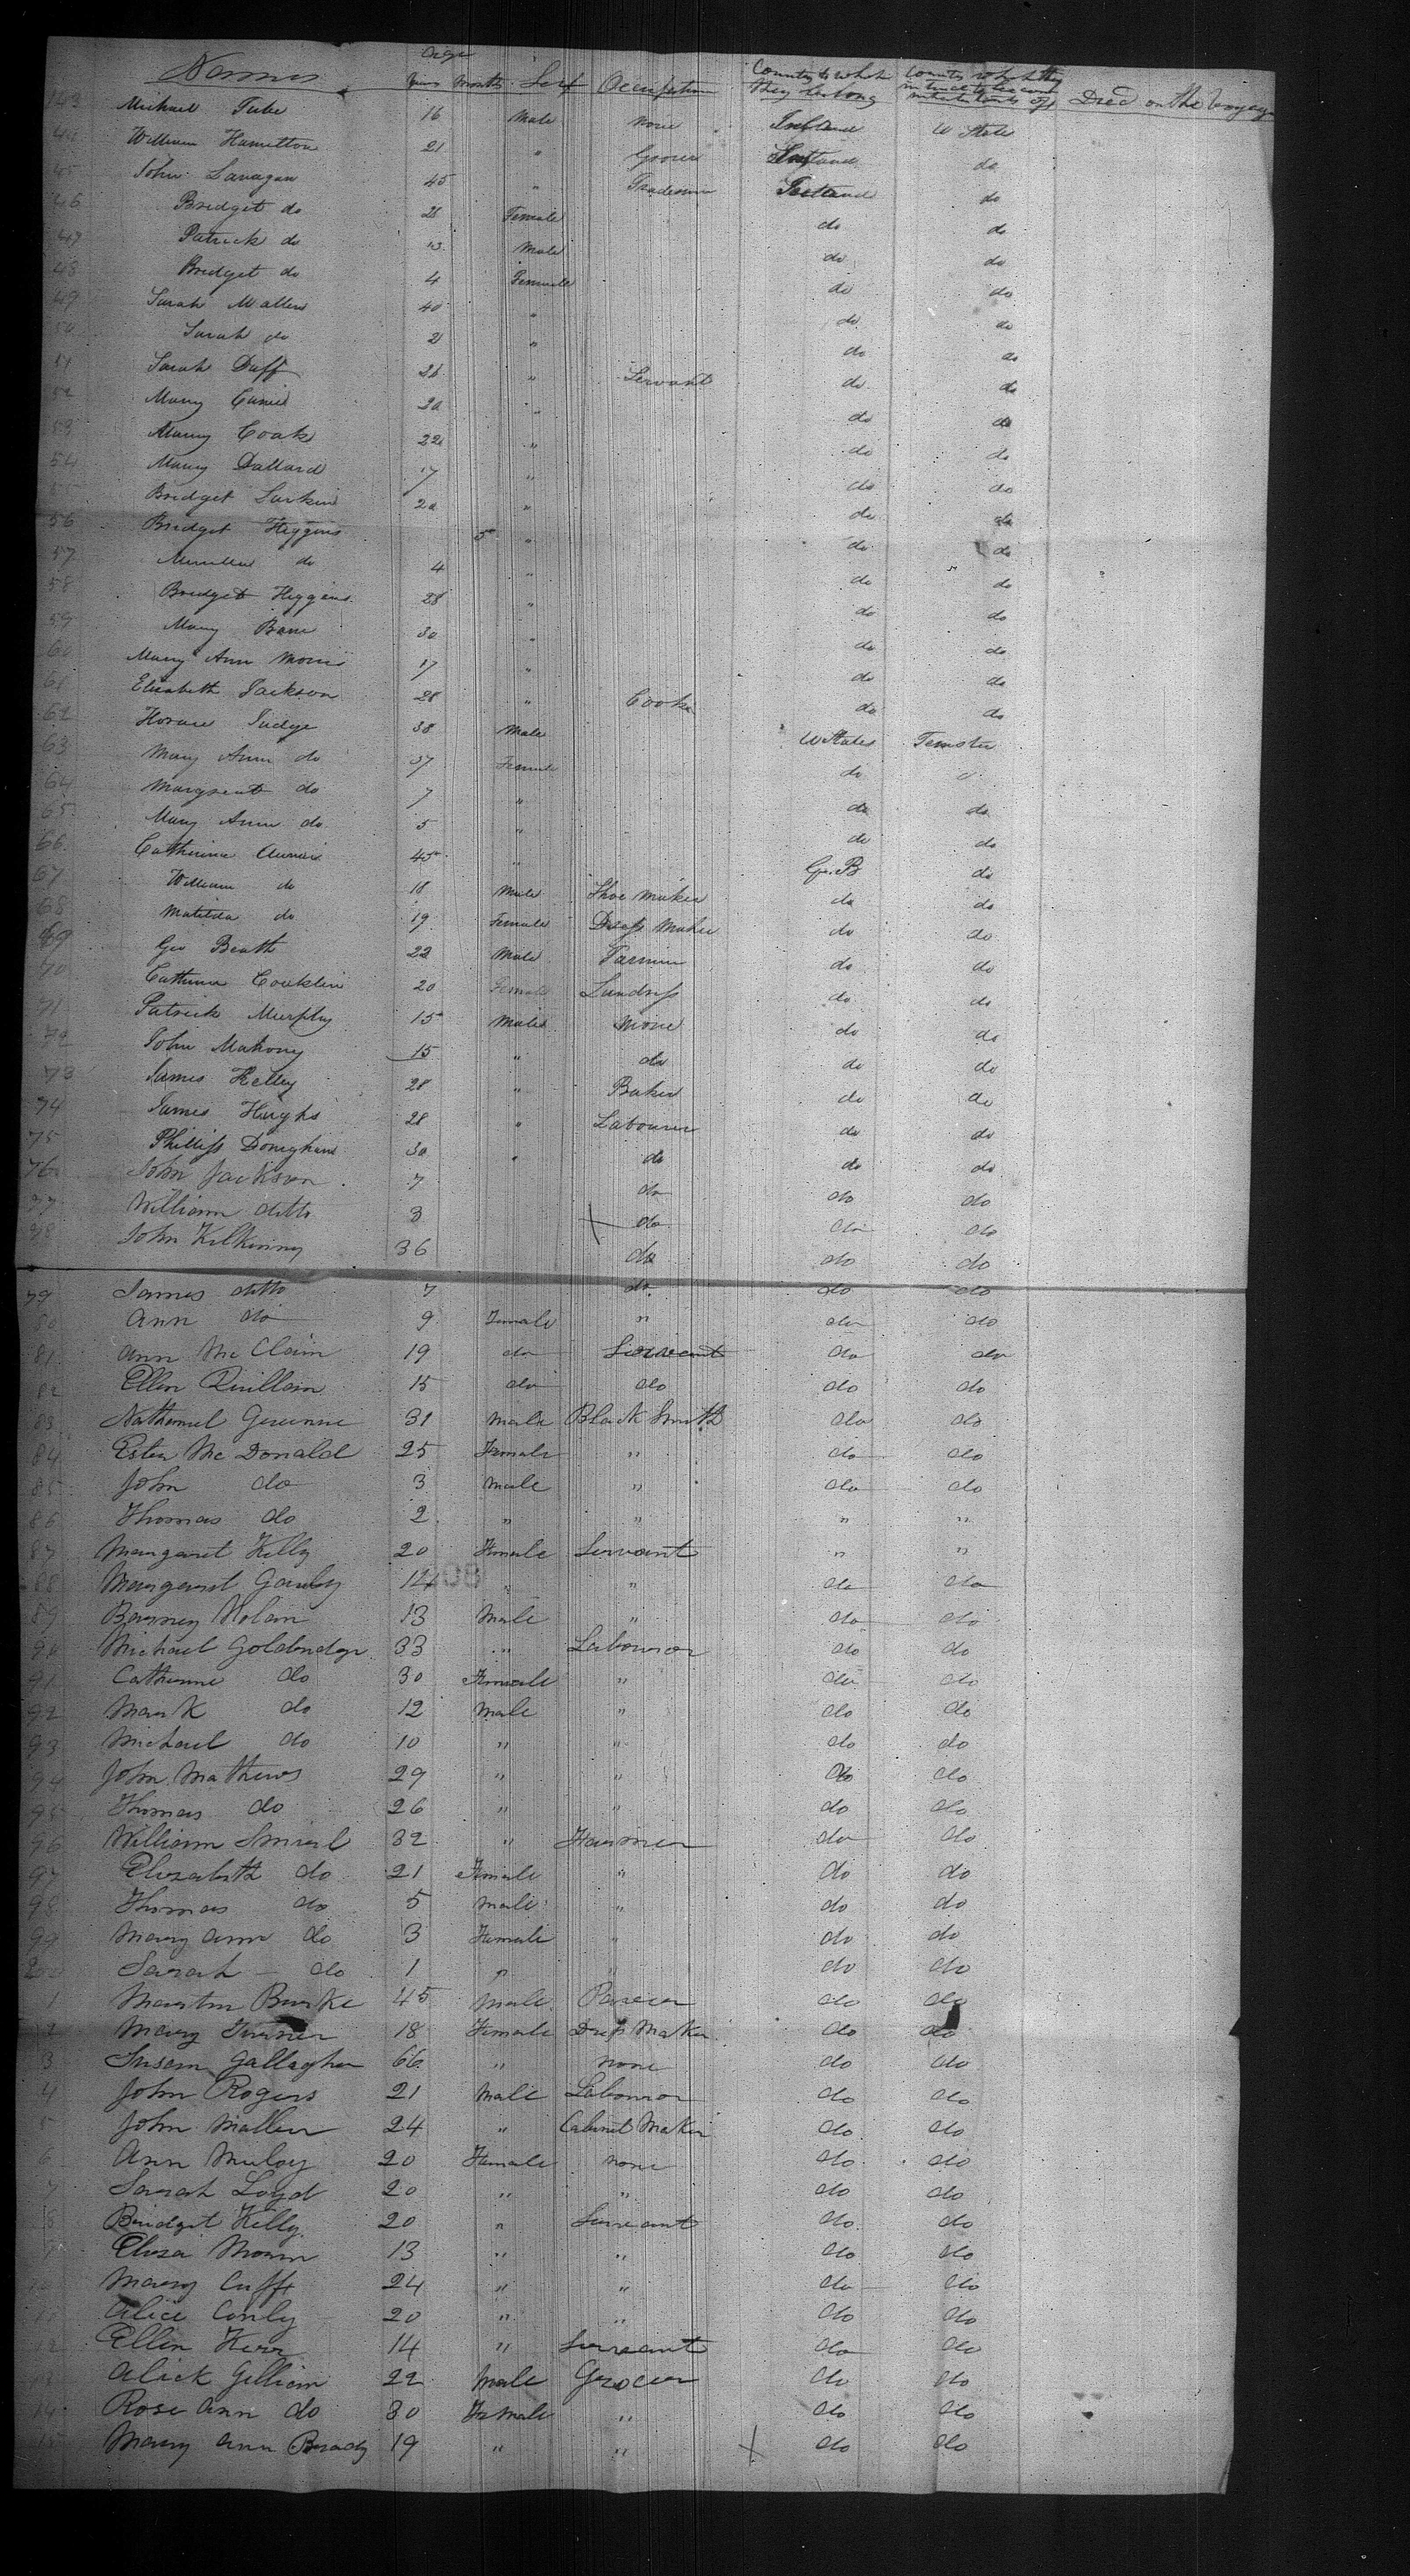 Names Age Years Months Sex Occupation Country to which they belong Country which they intend to become inhabitants of Died on the Voyage
143 Michael 16 Male none U States
44 William Hamilton 21 " Grocer do
45 John Lanagan 45 " Tradesman do
46 Bridget do 28 Female do do
47 Patrick do 13 Male do do
48 Bridget do 4 Female do do
49 Sarah Mallen 40 " do do
50 Sarah do 2 " do do
51 Sarah Duff 26 " Servant do do
52 Mary 20 " do do
53 Mary Cook 22 " do do
54 Mary Dallard 17 " do do
Bridget Larkin 20 " do do
56 Bridget Higgins 5 " do do
57 do 4 " do do
58 Bridget Higgins 28 " do do
59 Mary 30 " do do
60 Mary Ann Morris 17 " do do
61 Elizabeth Jackson 28 " Cook do do
62 Horace Judge 38 Male U States
63 Mary Ann do 37 Female do
64 Margreat do 7 " do do
65 Mary Ann do 5 " do do
66 Catherine 45 " Gr. B do
67 William do 18 Male Shoe Maker do do
68 Matilda do 19 Female Dress Maker do do
69 Geo Beath 22 Male Farmer do do
70 Catherine Conklin 20 Female Landress do do
71 Patrick Murphy 15 Male none do do
72 John Mahony 15 " do do do
73 James Kelley 28 " Baker do do
74 James Hughs 28 " Labourer do do
75 Phillip 30 " do do do
76 John Jackson 7 do do do
77 William ditto 3 do do do
78 John Kilkenny 36 do do do
79 James ditto 7 do do do
80 Ann do 9 Female " do do
81 Ann McClain 19 do Servant do do
82 Ellen Quillan 15 do do do do
83 Nathaniel 31 Male Black Smith do do
84 Ester McDonald 25 Female " do do
85 John do 3 Male " do do
86 Thomas do 2 " " " "
87 Margaret Kelly 20 Female Servant " "
88 Margaret 14 " " do do
89 Barney Nolan 13 Male " do do
90 Michael 33 " Labouror do do
91 Catherine do 30 Female " do do
92 Mark do 12 Male " do do
93 Michael do 10 " " do do
94 John Mathews 29 " " do do
95 Thomas do 26 " " do do
96 William 32 " Farmer do do
97 Elizabeth do 21 Female " do do
98 Thomas do 5 Male " do do
99 Mary Ann do 3 Female " do do
200 Sarah do 1 " " do do
1 Martin Burke 45 Male do do
2 Mary Turner 18 Female Dress Maker do do
3 Susan Gallagher 66 " none do do
4 John Rogers 21 Male Labouror do do
5 John Mallen 24 " Cabinet Maker do do
6 Ann Muloy 20 Female none do do
7 Sarah Loyd 20 " " do do
8 Bridget Kelly 20 " Servant do do
9 Eliza 13 " " do do
10 Mary Cuff 24 " " do do
11 Alice Conly 20 " " do do
12 Ellen Kerr 14 " Servant do do
13 Alick Gilliam 22 Male Grocer do do
14 Rose Ann do 30 Female " do do
15 Mary Ann Brady 19 " " do do